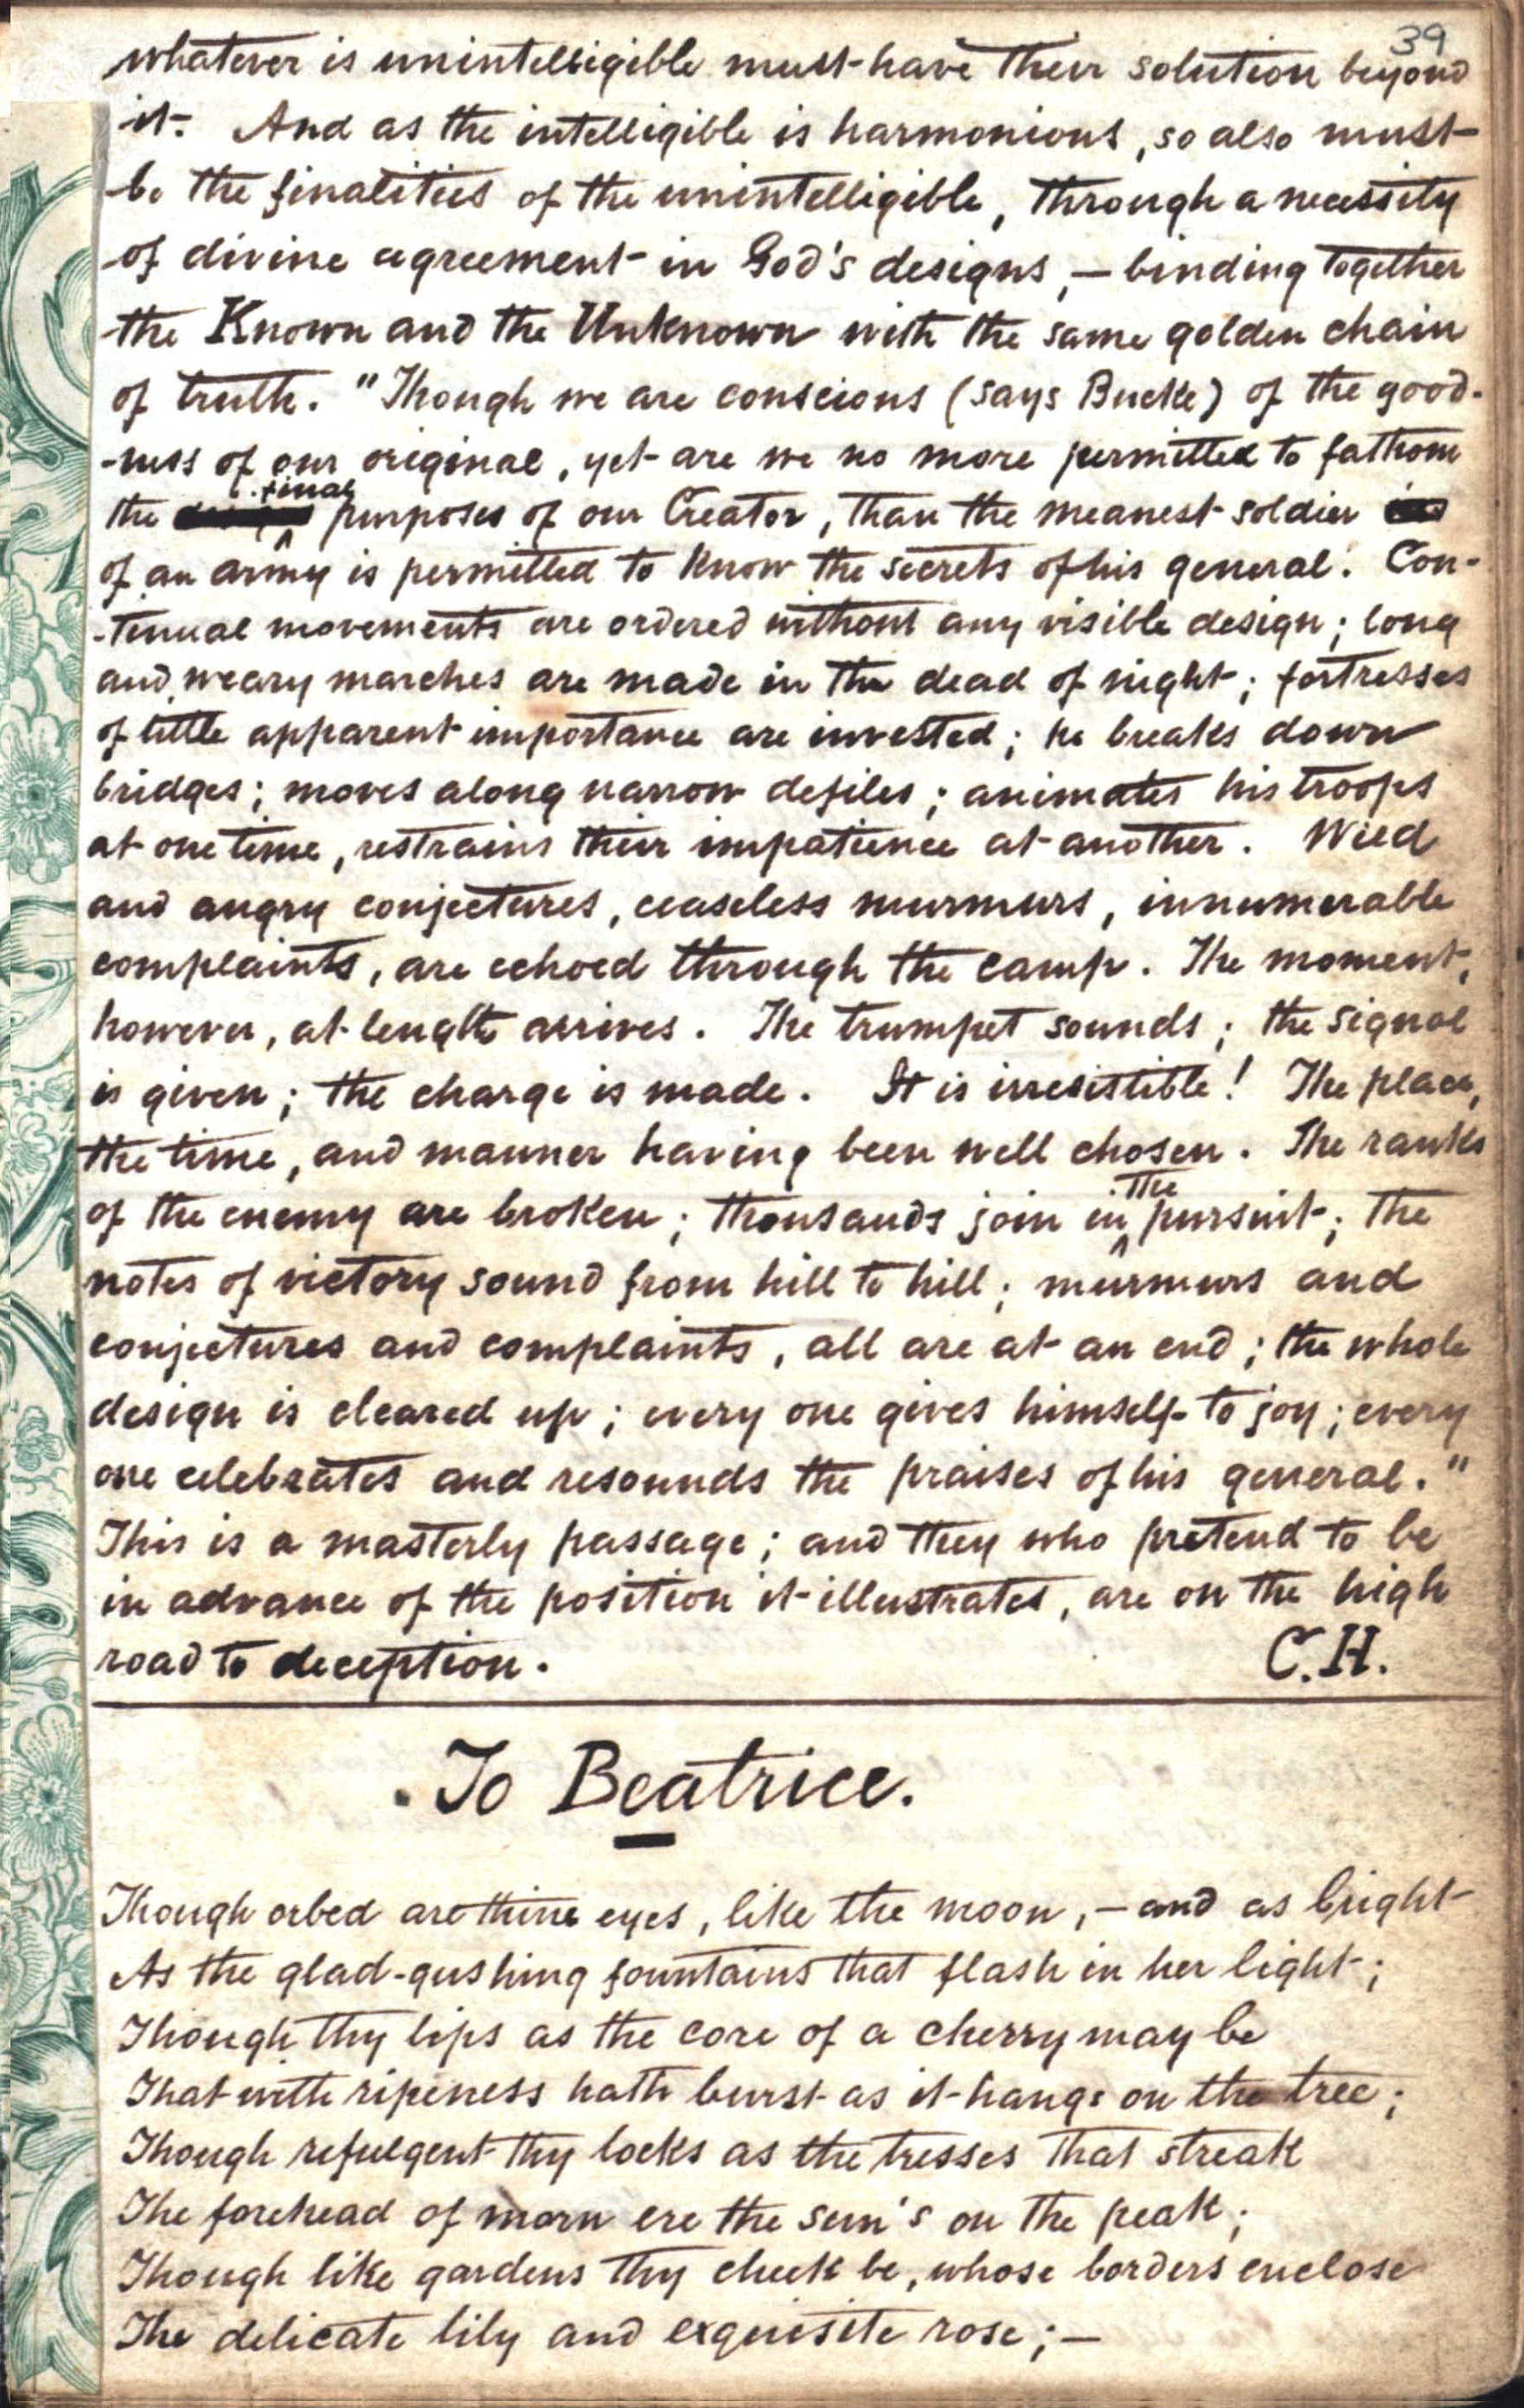 39
whatever is unintelligible must have their solution beyond
it. And as the intelligible is harmonious, so also must
be the finalities of the unintelligible, through a necessity
of divine agreement in God's designs, — binding together
the Known and the Unknown with the same golden chain
of truth. "Though we are conscious (says Bucke) of the good-
-ness of our original, yet are we no more permitted to fathom
the final purposes of our Creator, than the meanest soldier
of an army is permitted to know the secrets of his general. Con-
-tinual movements are ordered without any visible design; long
and weary marches are made in the dead of night; fortresses
of little apparent importance are invested; he breaks down
bridges; moves along narrow defiles; animates his troops
at one time, restrains their impatience at another. Wild
and angry conjectures, ceaseless murmurs, innumerable
complaints, are echoed through the camp. The moment,
however, at length arrives. The trumpet sounds; the signal
is given; the charge is made. It is irresistible! The place,
the time, and manner having been well chosen. The ranks
of the enemy are broken; thousands join in the pursuit; the
notes of victory sound from hill to hill; murmurs and
conjectures and complaints, all are at an end; the whole
design is cleared up; every one gives himself to joy; every
one celebrates and resounds the praises of his general."
This is a masterly passage; and they who pretend to be
in advance of the position it illustrates, are on the high
road to deception. C.H.
To Beatrice.
Though orbed are thine eyes, like the moon, — and as bright
As the glad-gushing fountains that flash in her light;
Though thy lips as the core of a cherry may be
That with ripeness hath burst as it hangs on the tree;
Though refulgent thy locks as the tresses that streak
The forehead of morn ere the sun's on the peak;
Though like gardens thy cheek be, whose borders enclose
The delicate lily and exquisite rose; —